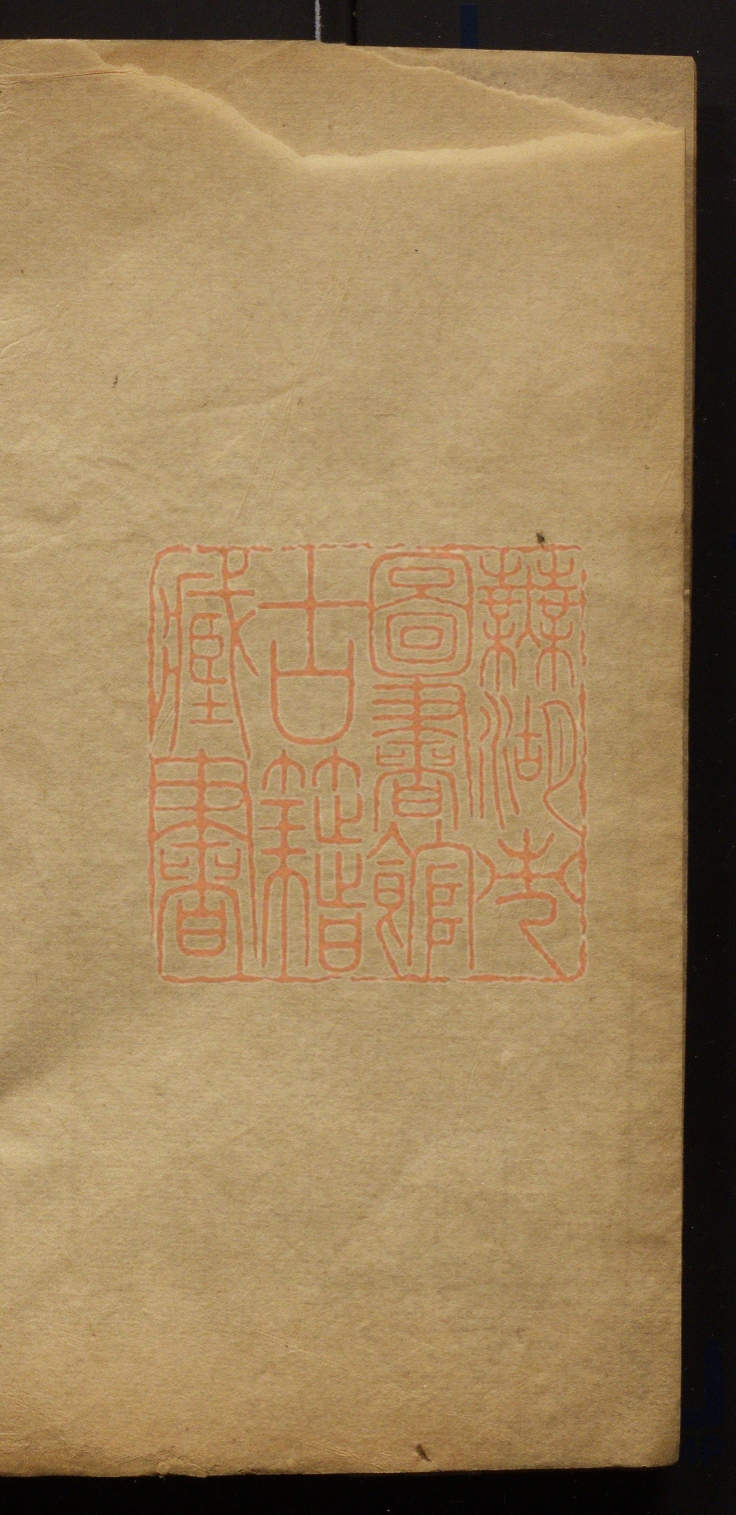 蕪湖市
圖書館
古籍
藏書